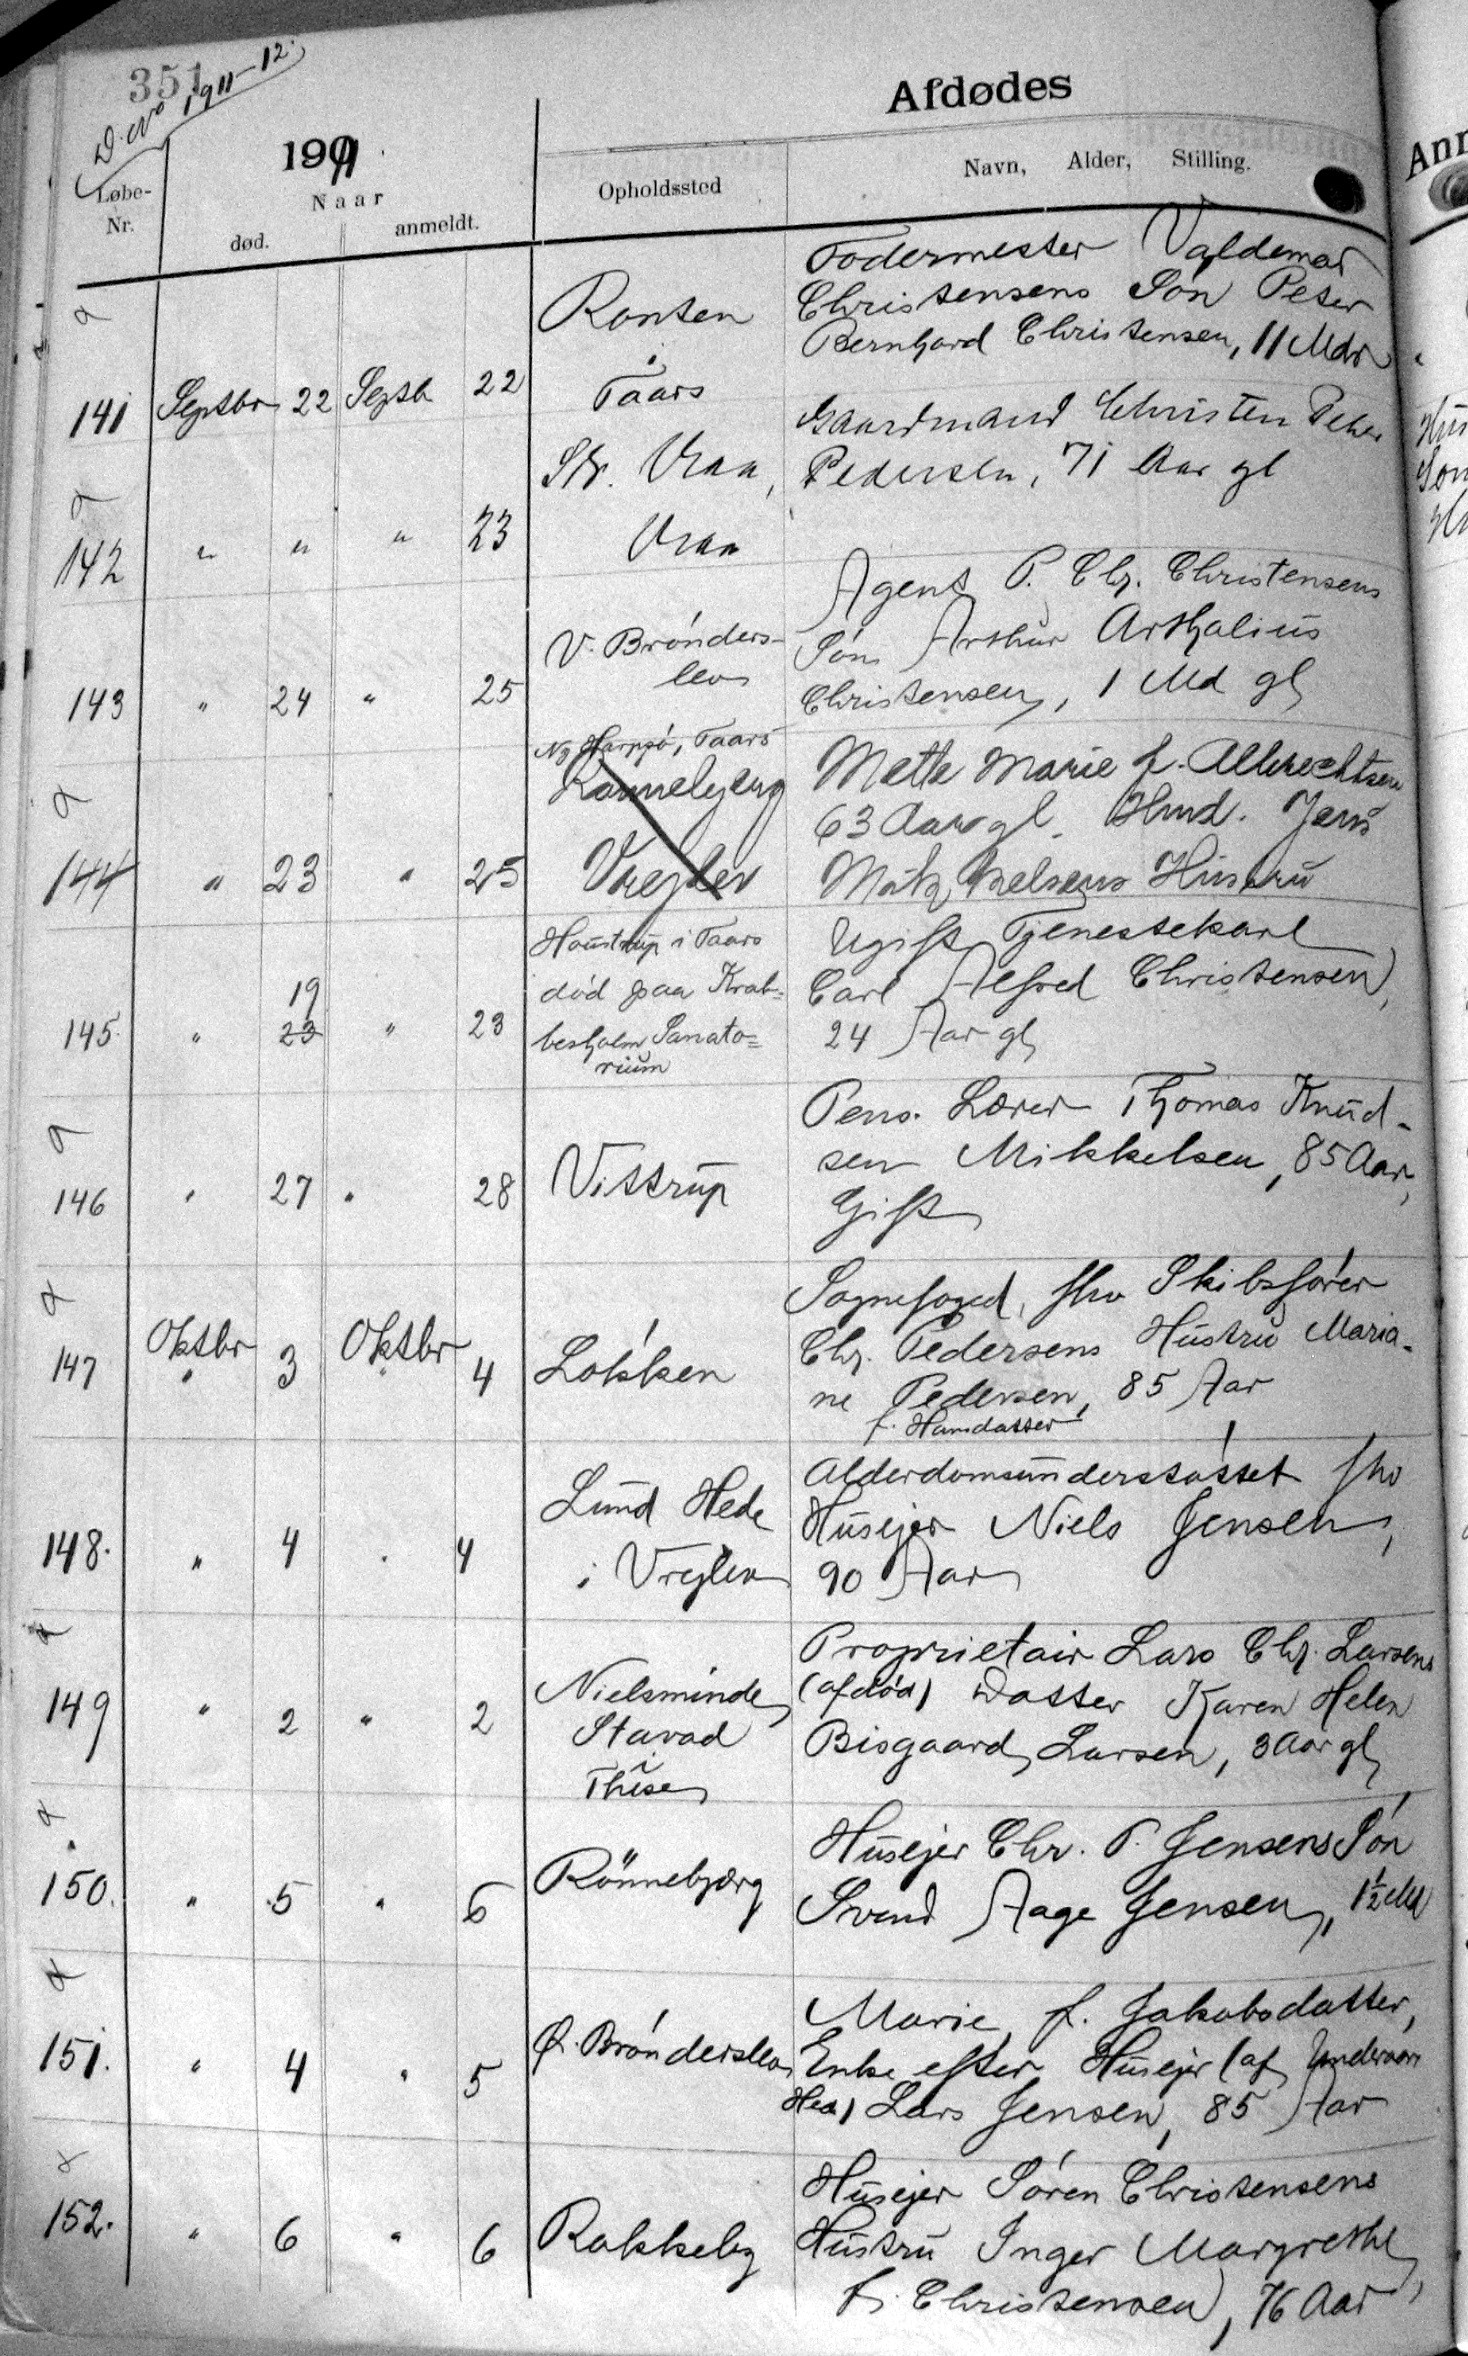 351
D. No 1911-12.
Afdødes
1911.
Løbe-
Nr.
Naar
død.
anmeldt.
Opholdssted
Navn, Alder, Stilling.
Fodermester Valdemar
Ronsen Christensens Søn Peter
i Bernhard Christensen, 11 Mdr
141 Septbr 22 Septb 22 Taars
Gaardmand Christen Peter
Str. Vraa, Pedersen, 71 Aar gl
142 " " " 23 Vraa
Agent P. Chr. Christensens
V. Brønders- Søn Arthur Arthalius
143 " 24 " 25 lev Christensen, 1 Md gl
Ny Harpsø, Taars
Rønnebjerg Mette Marie f. Albrechtsen
63 Aar gl. Hmd. Jens
144 " 23 " 25 Vrejlev Husstru
Houstrup i Taars Ugift Tjenestekarl
død paa Krab= Carl Alfred Christensen,
19
145. " 23 " 23 besholm Sanato= 24 Aar gl
rium
Pens. Lærer Thomas Knud-
sen Mikkelsen, 85 Aar,
146 " 27 " 28 Vittrup Gift
Sognefoged, fhv Skibsfører
147 Oktbr 3 Oktbr 4 Løkken Chr. Pedersens Hustru Maria-
ne Pedersen, 85 Aar
f. Hansdatter
Alderdomsunderstøttet fhv
Lund Hede Husejer Niels Jensen,
148. " 4 " 4 i Vrejlev 90 Aar
Proprietair Lars Chr. Larsens
Nielsminde (afdød) Datter Karen Helen
149 " 2 " 2 Stavad Bisgaard Larsen, 3 Aar gl
i Thise
Husejer Chr. P. Jensens Søn
150. " 5 " 6 Rønnebjerg Svend Aage Jensen, 1½ Md
Marie, f. Jakobsdatter,
151. " 4 " 5 Ø. Brønderslev Enke efter Husejer (af
Hed) Lars Jensen, 85 Aar
Husejer Søren Christensens
152. " 6 " 6 Rakkeby Hustru Inger Margrethe,
f. Christensen, 76 Aar